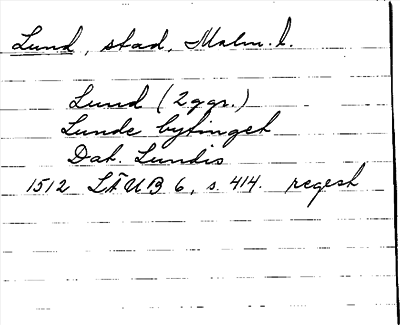 Lund, stad, Malm. l.
Lund (2 ggr.)
Lunde bytinget
Dat. Lundis
1512 LÄUB 6, s. 414. regest